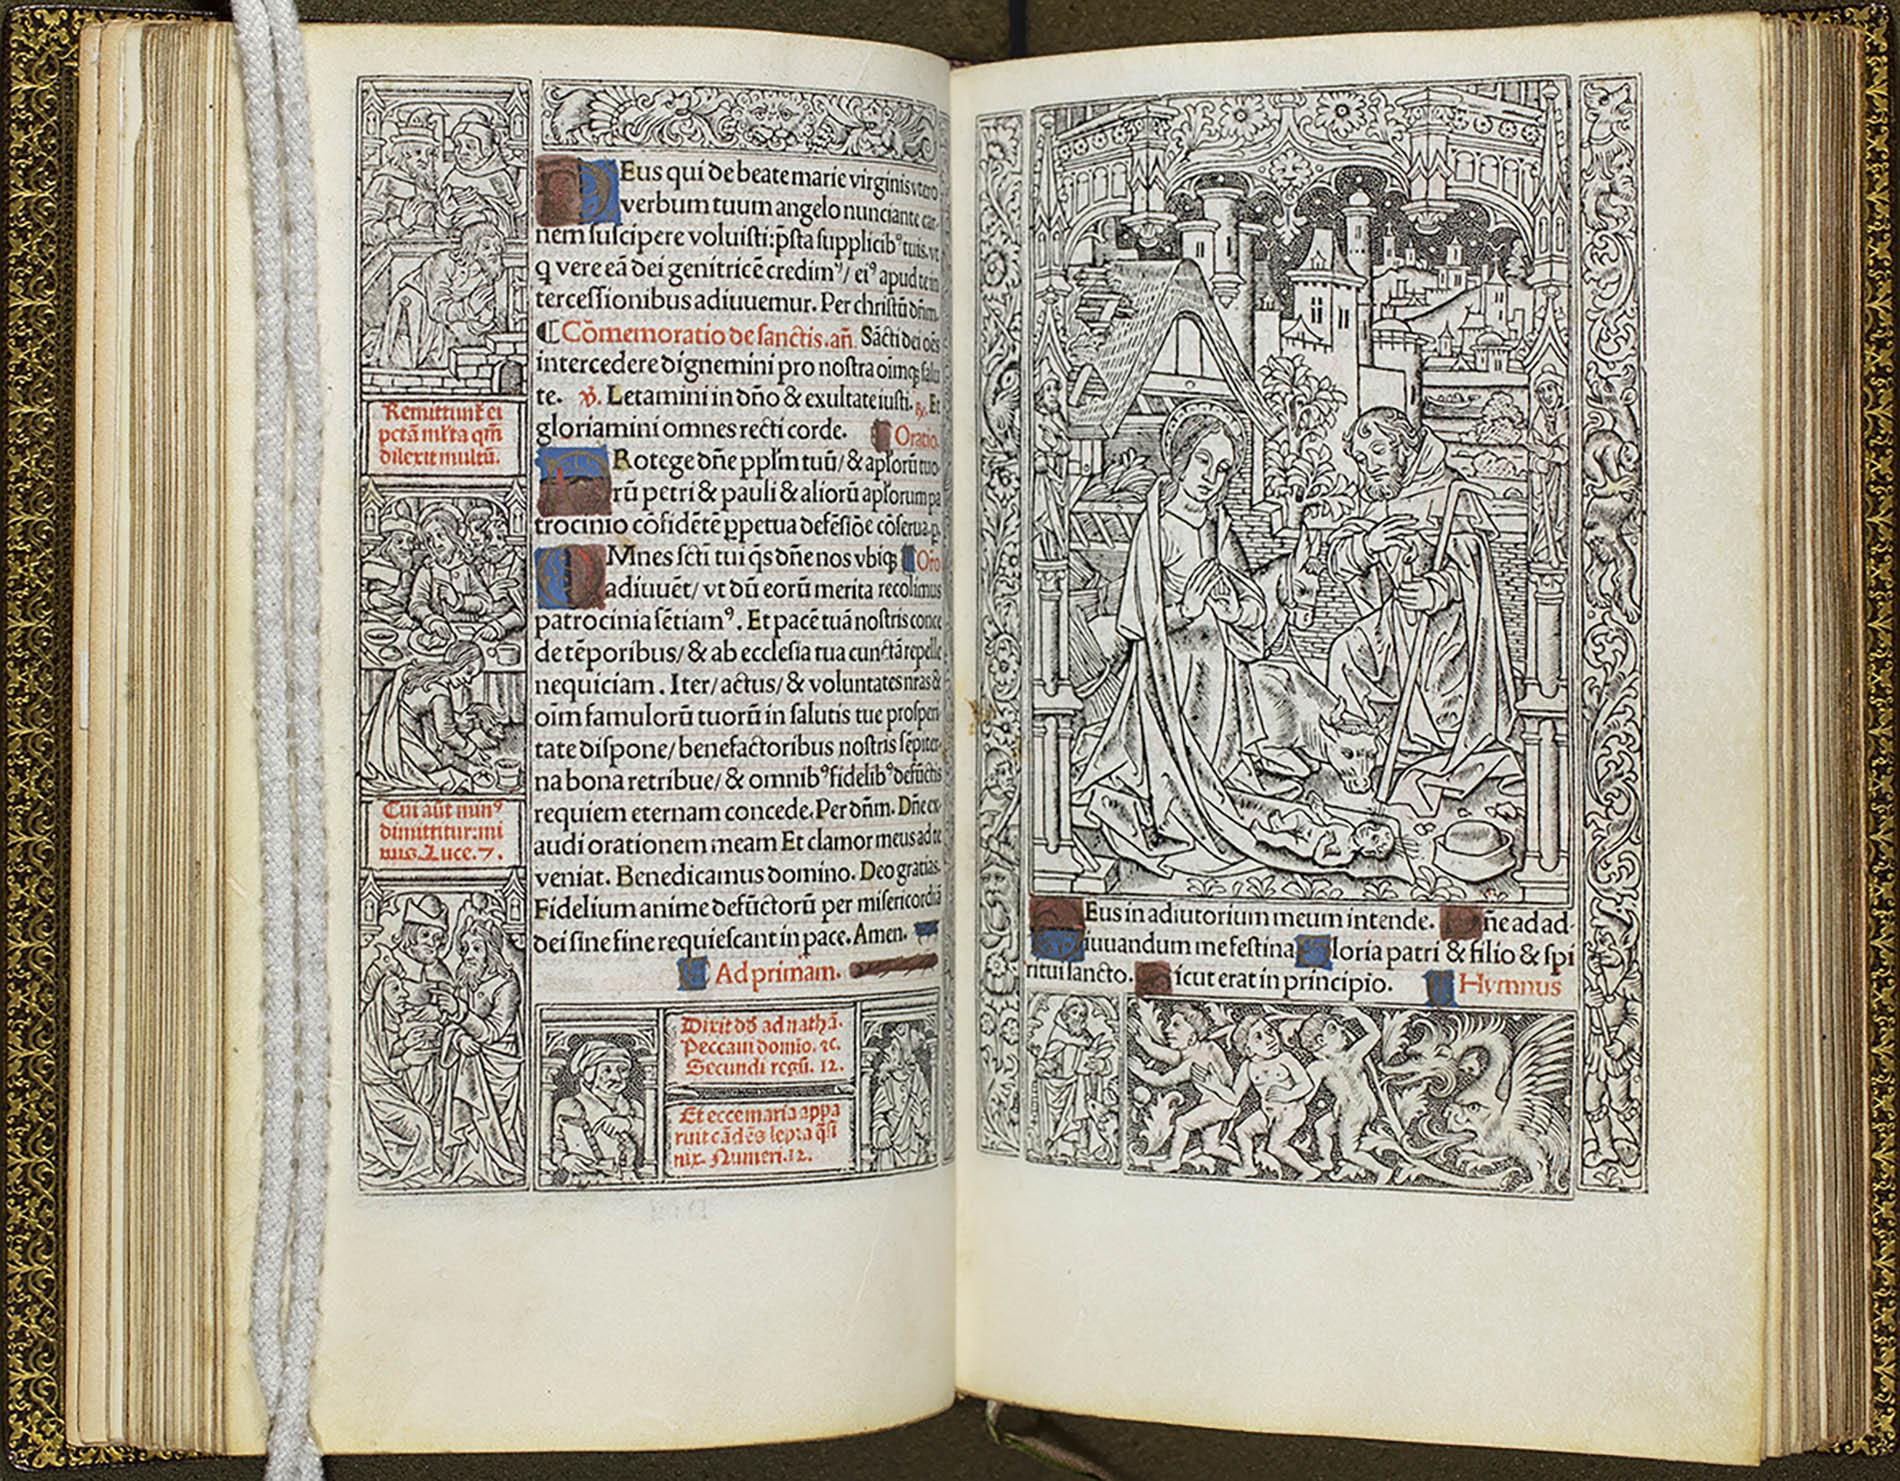 Deus qui de beate marie virginis vtero
verbum tuum angelo nunciante car-
nem suscipere voluisti: p̄sta supplicibꝰ tuis. vt
q vere eā dei genitricē credimꝰ/ eiꝰ apud te in
tercessionibus adiuuemur. Per christū dn̄m.
¶ Cōmemoratio de sanctis. an̄. Sācti dei oēs
intercedere dignemini pro nostra oimqꝫ salu
te. ℣. Letamini in dn̄o & exultate iusti. ℟. Et
gloriamini omnes recti corde. Oratio.
Protege dn̄e ppl'm tuū/ & apl'orū tuo
rū petri & pauli & aliorū apl'orum pa
trocinio cōfidētē ꝑpetua defēsiōe cōserua. p.
Omnes sctī tui q̄s dn̄e nos vbiqꝫ Orō
adiuuēt/ vt dū eorū merita recolimus
patrocinia sētiamꝰ. Et pacē tuā nostris conce
de tēporibus/ & ab ecclesia tua cunctā repelle
nequiciam. Iter/ actus/ & voluntates nr̄as &
oīm famulorū tuorū in salutis tue prosperi
tate dispone/ benefactoribus nostris sēpiter-
na bona retribue/ & omnibꝰ fidelibꝰ defūctis
requiem eternam concede. Per dn̄m. Dn̄e ex-
audi orationem meam Et clamor meus ad te
veniat. Benedicamus domino. Deo gratias.
Fidelium anime defūctorū per misericordiā
dei sine fine requiescant in pace. Amen.
Ad primam.
Remittunt̄ ei
pctā ml'ta qm̄
dilexit multū.
Cui aūt minꝰ
dimittitur: mi
nus. Luce. 7.
Dixit dd̄ ad nathā.
Peccaui domīo. ⁊c.
Secundi regū. 12.
Et ecce maria appa
ruit cādēs lepra q̄si
nix. Numeri. 12.
Deus in adiutorium meum intende. Dn̄e ad ad-
iuuandum me festina Gloria patri & filio & spi
ritui sancto. Sicut erat in principio. Hymnus